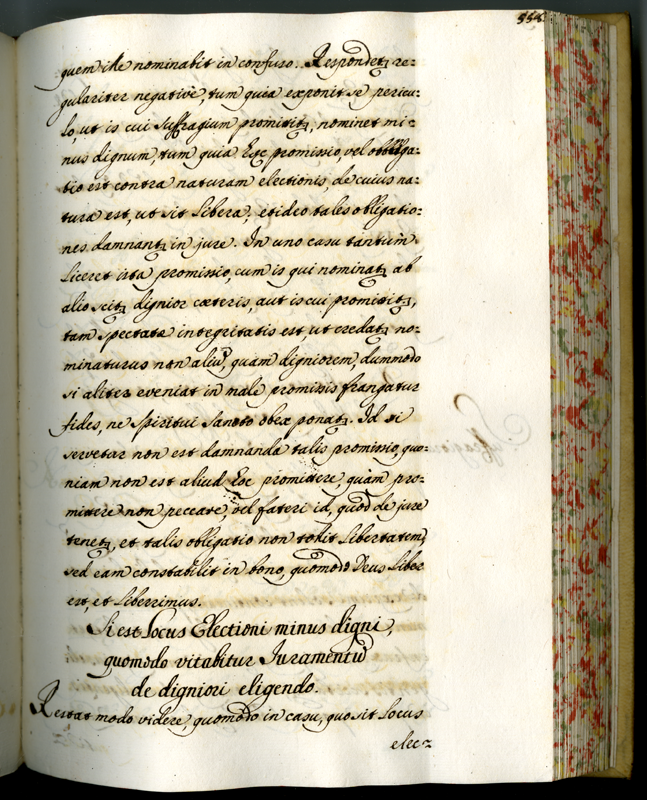 554.
quem ille nominabit in confuso. Respondetꝫ re=
gulariter negativè, tum quia exponit se pericu=
lo, ut is cui suffragium promititꝫ, nominet mi=
nus dignum, tum quia hęc promissio, vel obliga=
tio est contra naturam electionis, de cuius na=
tura est, ut sit libera, et ideo tales obligatio=
nes damnantꝫ in jure. In uno casu tantùm
liceret ista promissio, cum is qui nominatꝫ ab
alio scitꝫ dignior cæteris, aut is cui promititꝫ,
tam spectatæ integritatis est, ut credatꝫ no=
minaturus non aliū, quàm digniorem, dummodo
si aliter eveniat in male promissis frangatur
fides, ne Spiritui Sancto obex ponatꝫ. Id si
servetur non est damnanda talis promissio, quo=
niam non est aliud hęc promittere, quàm pro=
mittere non peccare, vel fateri id, quod de jure
tenetꝫ, et talis obligatio non tollit libertatem,
sed eam constabilit in bono, quomodo Deus liber
est, et liberrimus.
Si est locus Electioni minus digni,
quomodo vitabitur Juramentū
de digniori eligendo.
Restat modo videre, quomodo in casu, quo sit locus
elec=